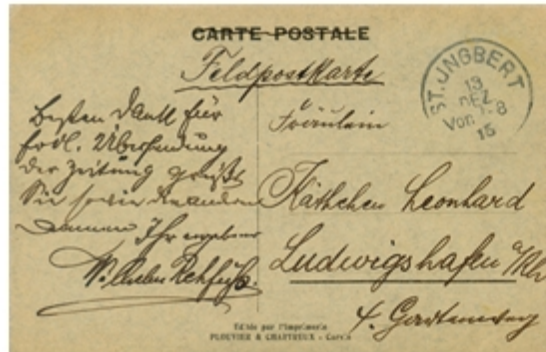 CARTE POSTALE
Feldpostkarte
ST. JNGBERT
13
DEZ
Vor. 7-8
15
Besten Dank für
frdl. Übersendung
der Zeitung grüßt
Sie sowie die anderen
Damen Ihr ergebener
Wilhelm Rehfuß.
Fräulein
Käthchen Leonhard
Ludwigshafen a/Rh
4. Gartenweg
Edité par l'Imprimerie
PLOUVIER & CHARTREUX - Carvin